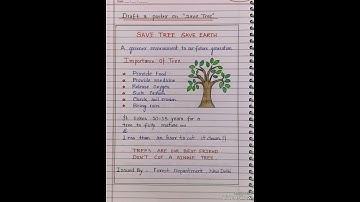 Draft a poster on "Save Tree"
SAVE TREE SAVE EARTH
A greener environment to our future generation
Importance Of Tree
Provide food
Provide medicine
Release oxygen
Check soil erosion
Bring rain
It takes 30-35 years for a
tree to fully mature
&
Less than an hour to cut it down !!
TREES ARE OUR BEST FRIEND
DON'T CUT A SINGLE TREE
Issued By : Forest Department, New Delhi